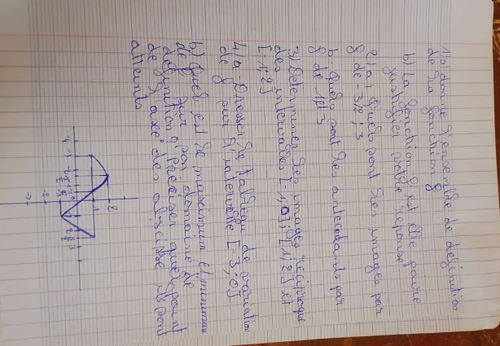 1) a) donne l'ensemble de définition
de la fonction g
b) La fonction g est elle paire
justifier votre réponse
2) a) Quels sont les images par
g de -3/2 ; 3
b Quels sont les antécédants par
g de -1 et 3
3) Déterminer les images réciproque
des intervalles [-1,0] ; [1,2] et
[-1,2]
4) a - Dresser le tableau de variation
de g sur l'intervalle [-3,0]
b) Quel est le maximum et minimum
de g sur son domaine de
définition et préciser quel point
de l'axe des abscisse ils sont
atteints